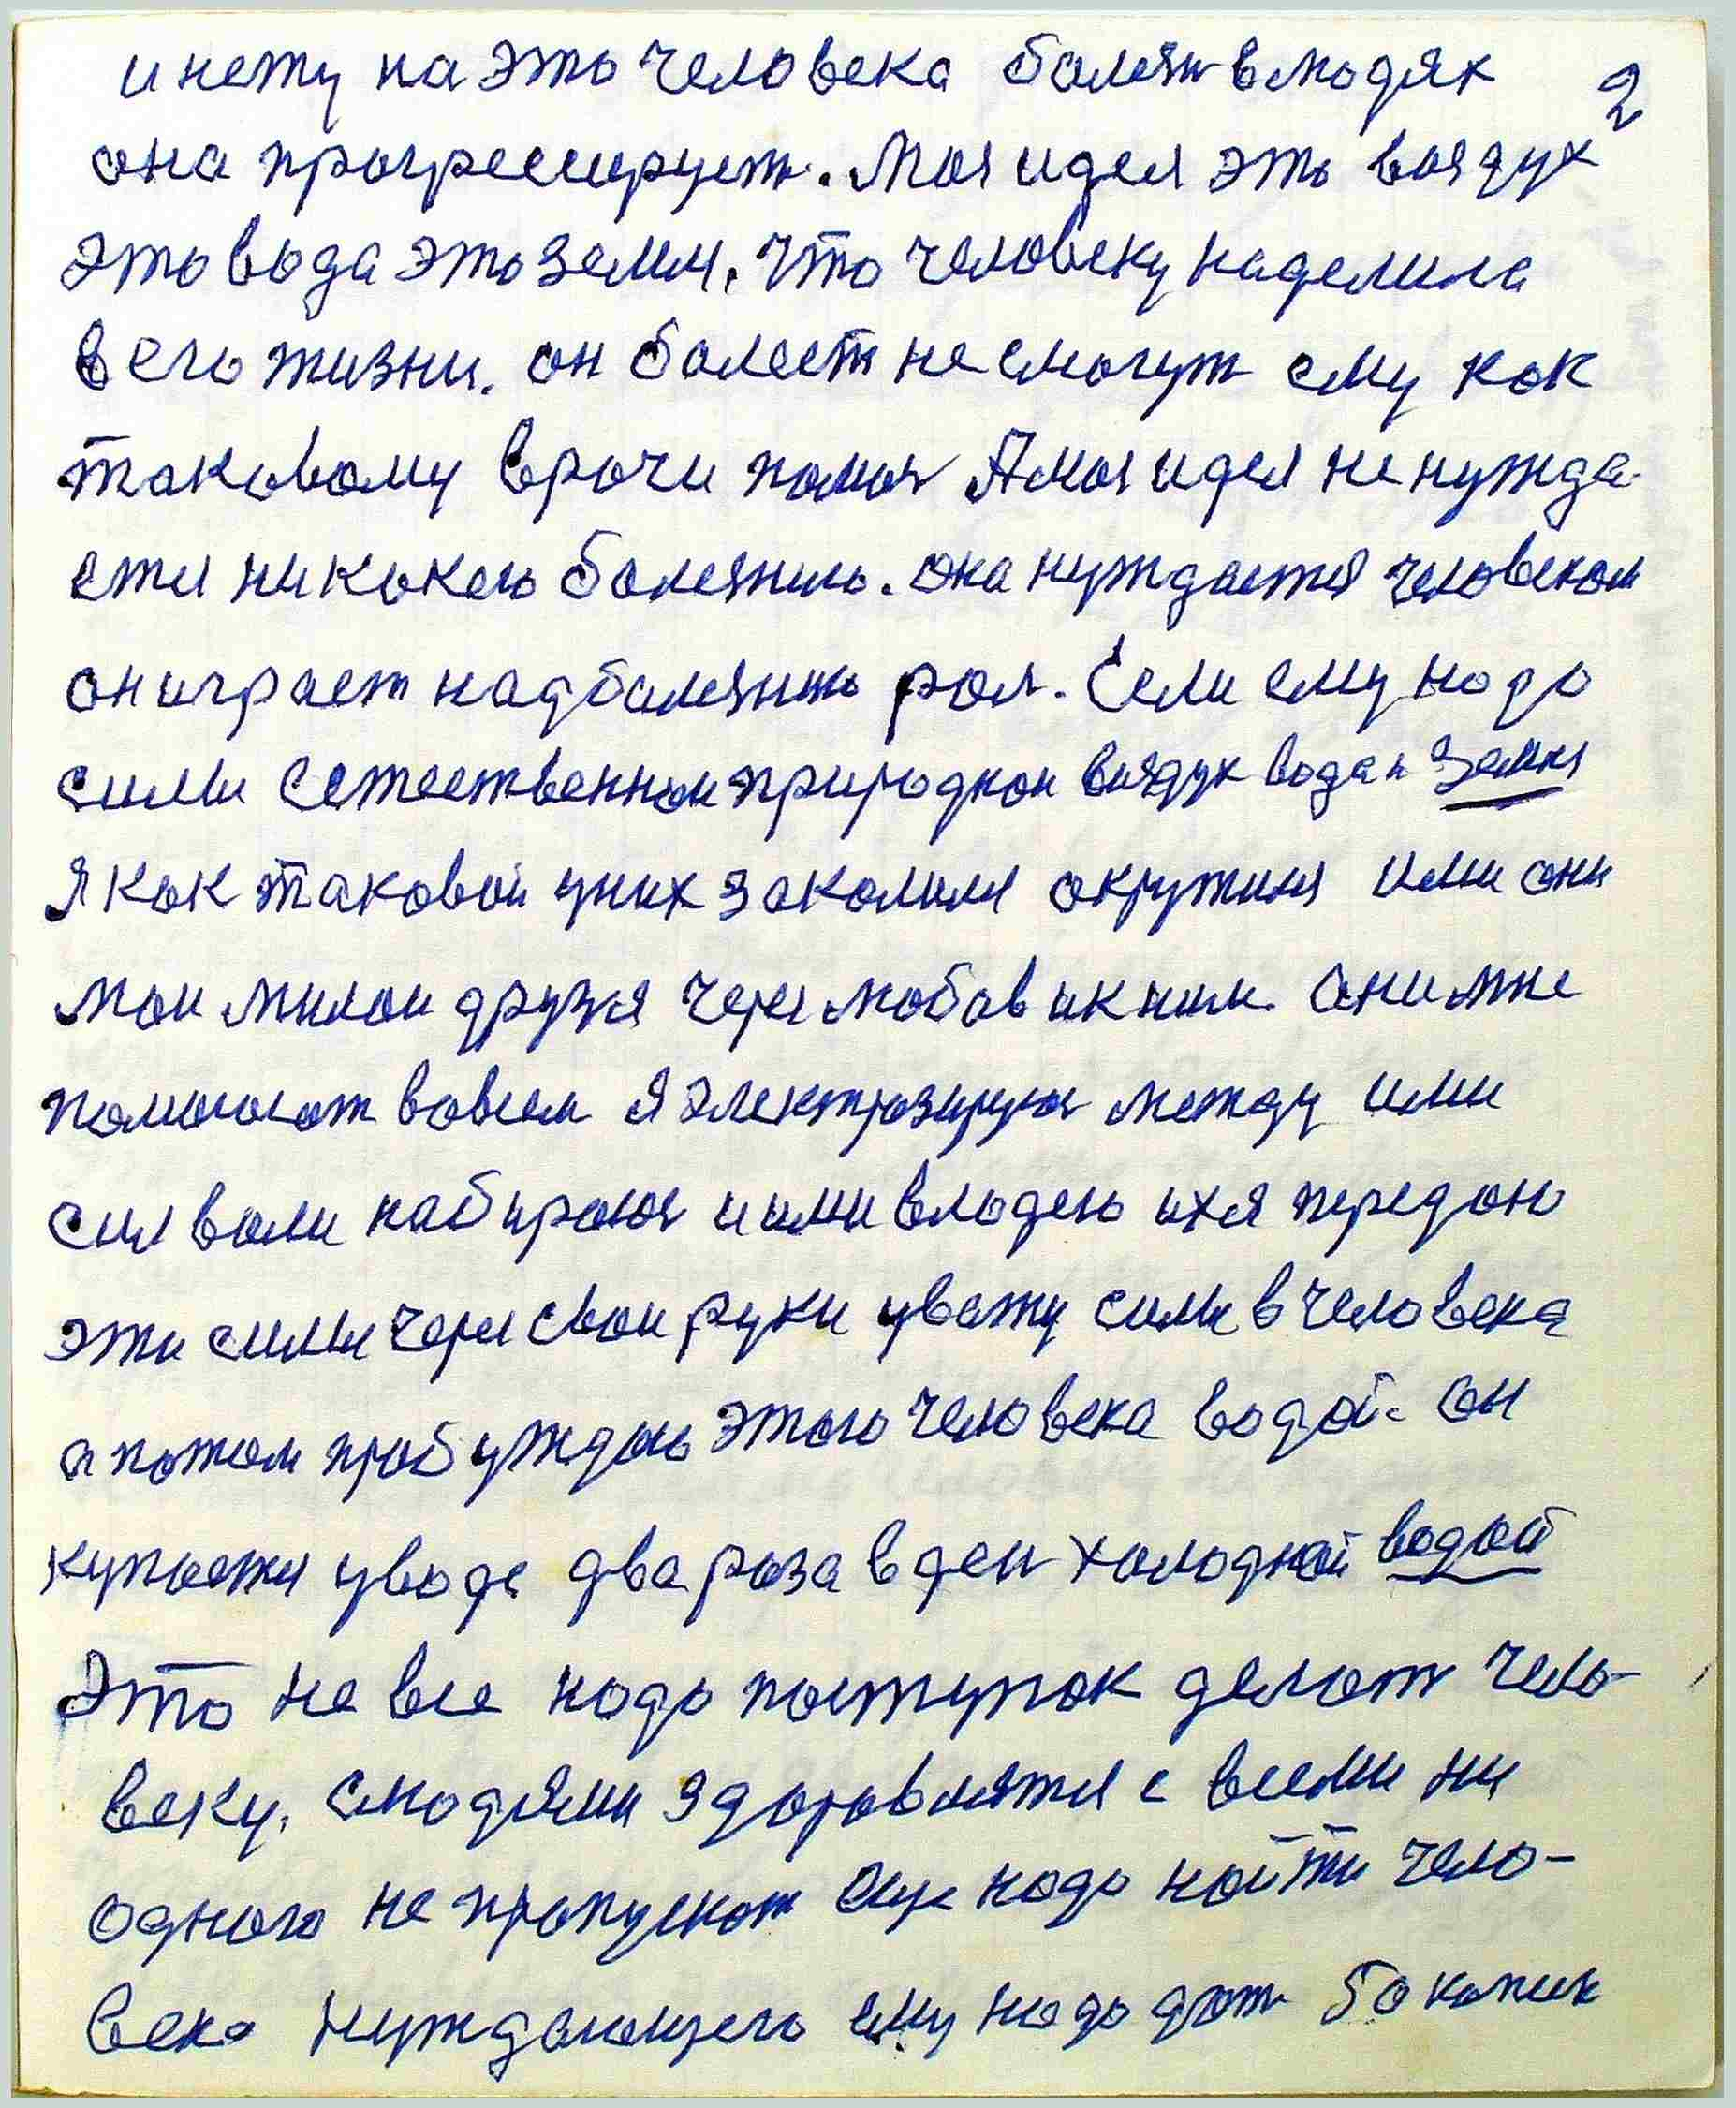 и нету на это человека болезн в людях
2
она прогресирует. Моя идея это воздух
это вода это земля. Что человеку наделила
в его жизни. он болеет не смогут ему как
таковому врачи помоч А моя идея не нужда-
ется никокего болезню. она нуждается человеком
он играет над болезнью рол. Если ему надо
силы Естественнои природнои воздух вода и Земля
Я как таковой у них закалился окружился ими они
мои милои друзя через любов и к ним. Они мне
помогают во всем Я электрозируюс между ими
сил воли набираюс и ими владею их я передаю
эти силы через свои руки увожу силы в человека
а потом пробуждаю этого человека водой. Он
купается у воде два раза в ден холодной водой
Это не все надо поступок делат чело-
веку. С людями здоровлятся с всеми ни
одного не пропускат Еще надо найти чело-
века нуждающего ему надо дат 50 копик